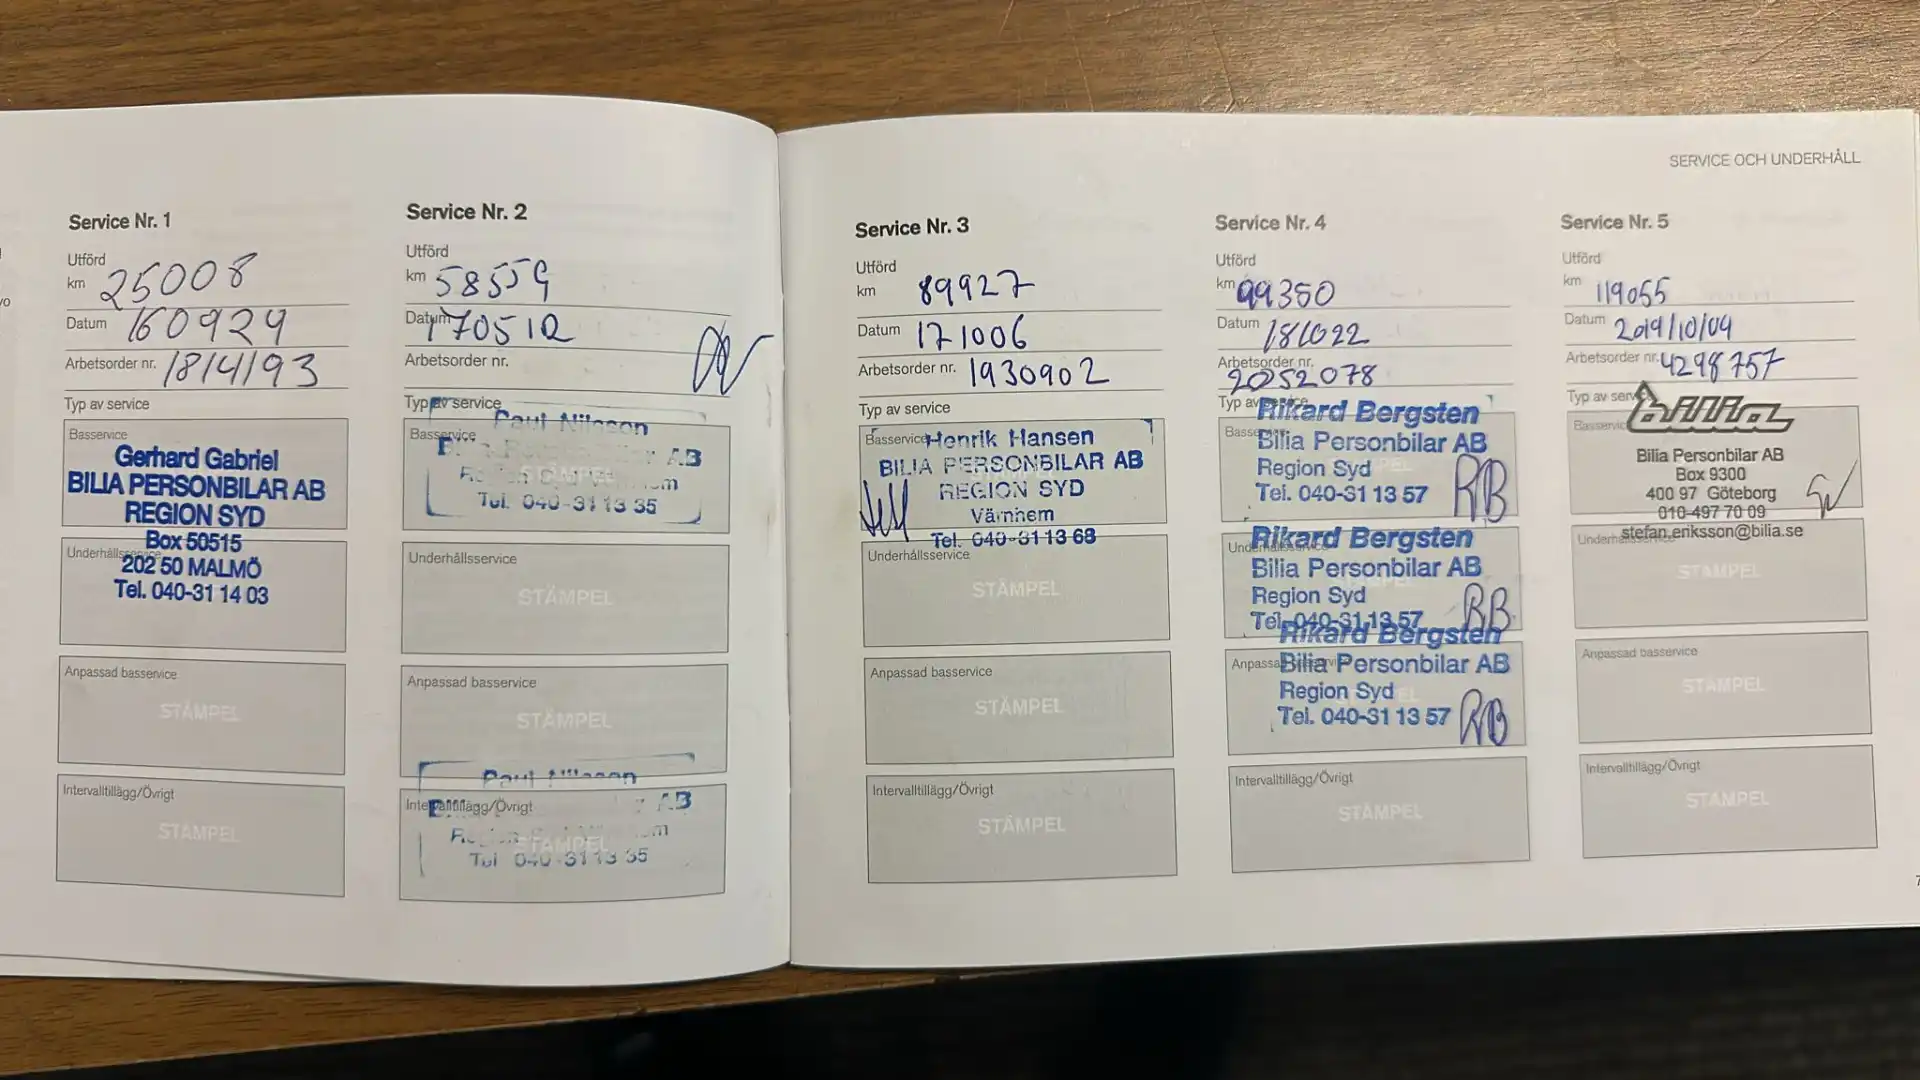 SERVICE OCH UNDERHÅLL
Service Nr. 1
Utförd
km 25008
Datum 160929
Arbetsorder nr. 1814193
Typ av service
Basservice
Gerhard Gabriel
BILIA PERSONBILAR AB
REGION SYD
Box 50515
Underhållsservice
202 50 MALMÖ
Tel. 040-31 14 03
Anpassad basservice
STÄMPEL
Intervalltillägg/Övrigt
STÄMPEL
Service Nr. 2
Utförd
km 58559
Datum 170512
Arbetsorder nr.
Typ av service
Paul Nilsson
Basservice
AB
STÄMPEL
Tel. 040-31 13 35
Underhållsservice
STÄMPEL
Anpassad basservice
STÄMPEL
Paul Nilsson
Intervalltillägg/Övrigt
AB
STÄMPEL
Tel 040-31 13 35
Service Nr. 3
Utförd
km 89927
Datum 171006
Arbetsorder nr. 1930902
Typ av service
Basservice
Henrik Hansen
BILIA PERSONBILAR AB
REGION SYD
Värnhem
Tel. 040-31 13 68
Underhållsservice
STÄMPEL
Anpassad basservice
STÄMPEL
Intervalltillägg/Övrigt
STÄMPEL
Service Nr. 4
Utförd
km 99350
Datum 181022
Arbetsorder nr.
2052078
Typ av service
Rikard Bergsten
Basservice
Bilia Personbilar AB
Region Syd
Tel. 040-31 13 57
RB
Rikard Bergsten
Underhållsservice
Bilia Personbilar AB
Region Syd
Tel. 040-31 13 57
RB
Rikard Bergsten
Anpassad basservice
Bilia Personbilar AB
Region Syd
Tel. 040-31 13 57
RB
Intervalltillägg/Övrigt
STÄMPEL
Service Nr. 5
Utförd
km 119055
Datum 2019/10/04
Arbetsorder nr. 4298757
Typ av service
bilia
Basservice
Bilia Personbilar AB
Box 9300
400 97 Göteborg
010-497 70 09
stefan.eriksson@bilia.se
Underhållsservice
STÄMPEL
Anpassad basservice
STÄMPEL
Intervalltillägg/Övrigt
STÄMPEL